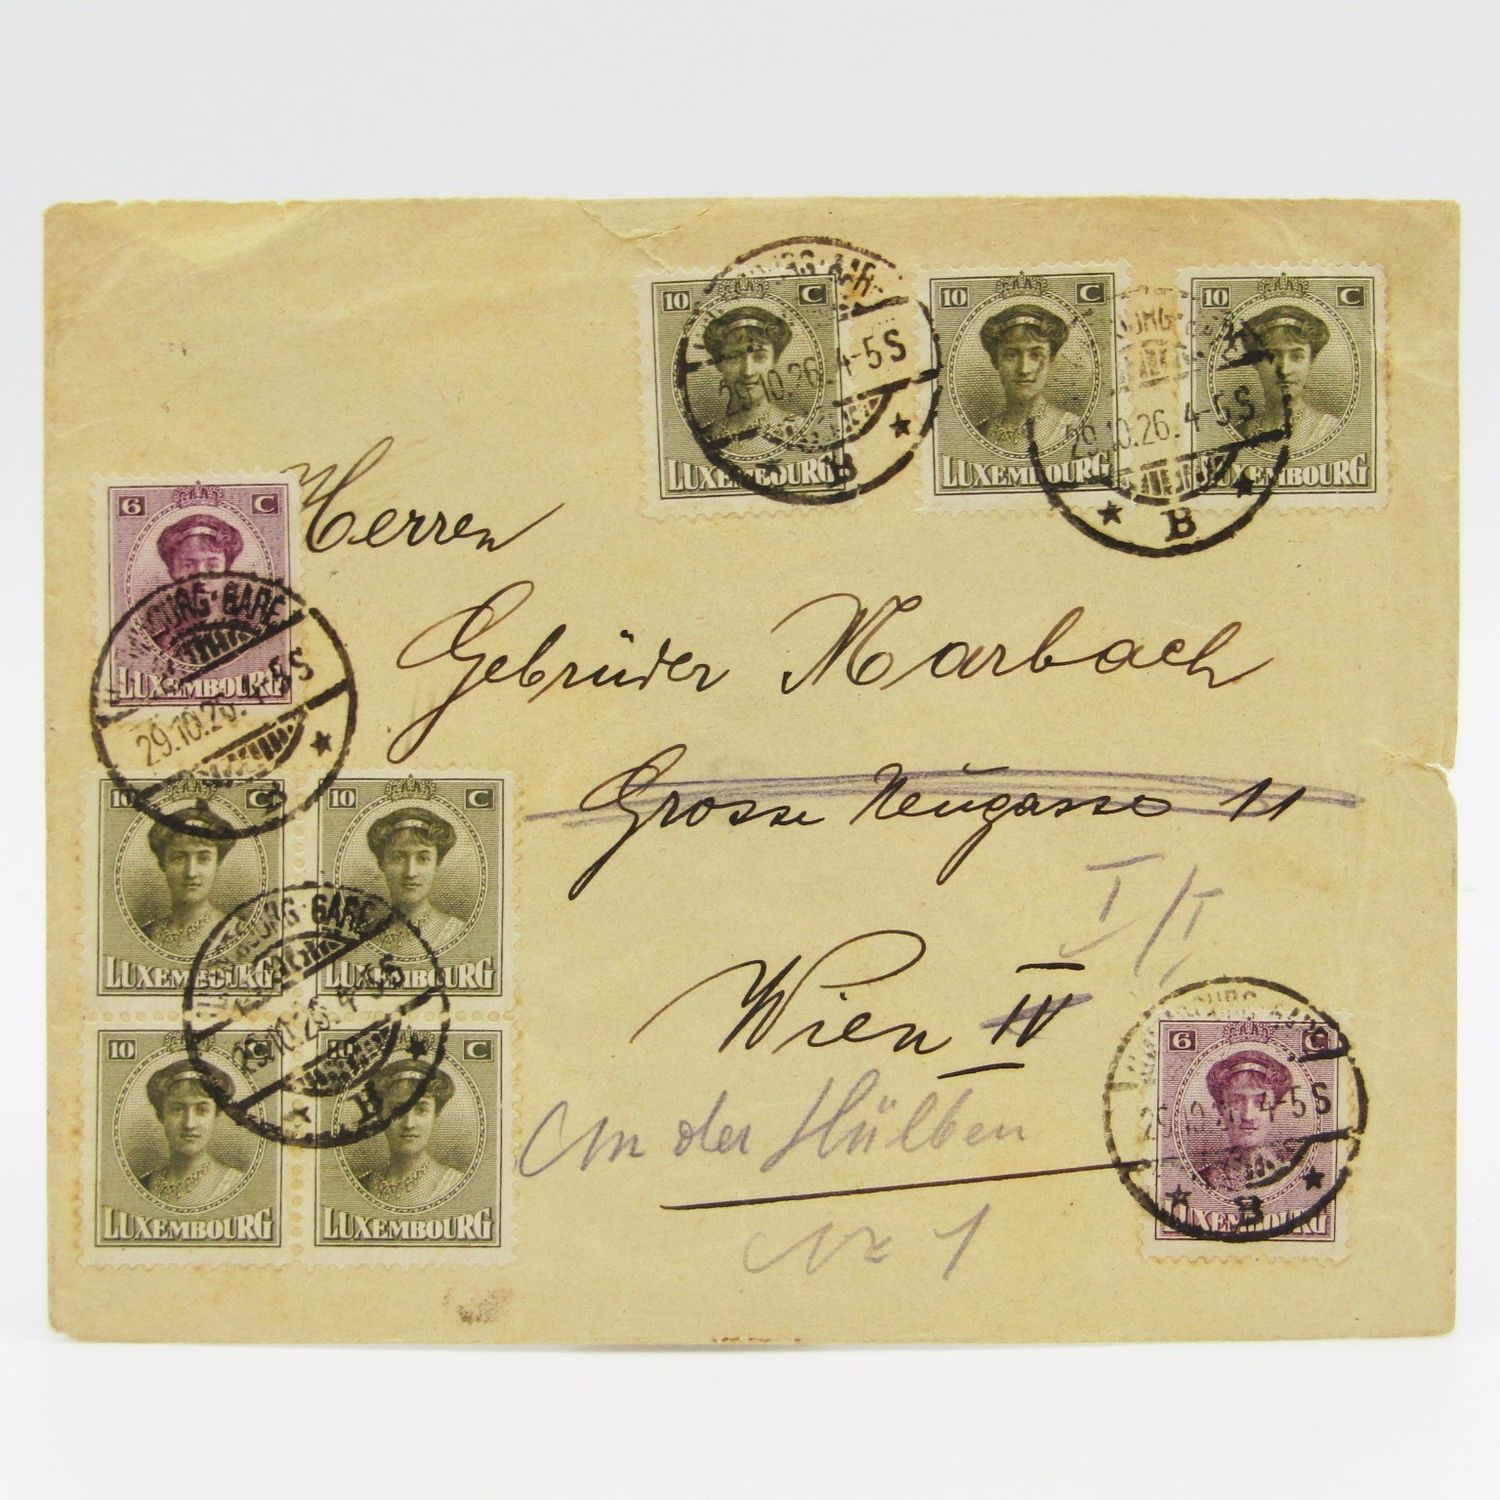 10 C
LUXEMBOURG
10 C
LUXEMBOURG
10 C
LUXEMBOURG
29.10.26. 4-5 S
B
29.10.26. 4-5 S
B
6 C
LUXEMBOURG
LUXEMBOURG-GARE
29.10.26. 4-5 S
Herren
Gebrüder Marbach
Grosse Neugasse 11
I/I
Wien IV
An der Hülben
Nr 1
10 C
LUXEMBOURG
10 C
LUXEMBOURG
LUXEMBOURG-GARE
29.10.26. 4-5 S
B
10 C
LUXEMBOURG
10 C
LUXEMBOURG
6 C
LUXEMBOURG
4-5 S
B